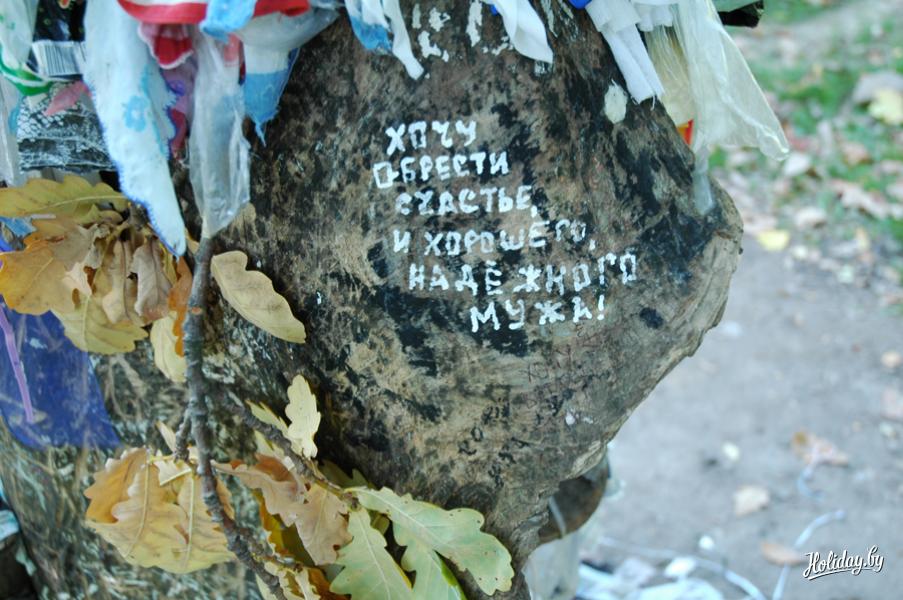 ХОЧУ
ОБРЕСТИ
СЧАСТЬЕ,
И ХОРОШЕГО,
НАДЁЖНОГО
МУЖА!
Holiday.by